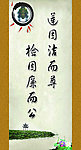 蓮因洁而尊
检因廉而公